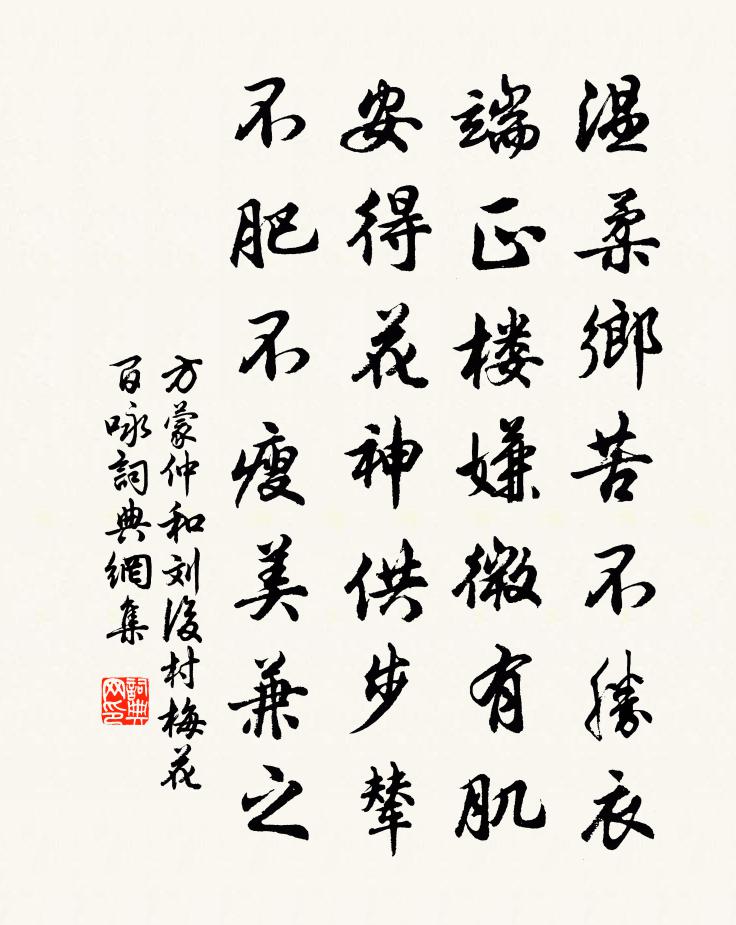 温柔鄉苦不勝衣
端正楼嫌微有肌
安得花神供步輦
不肥不瘦美兼之
方蒙仲和刘後村梅花
百咏詞典網集
詞典網印